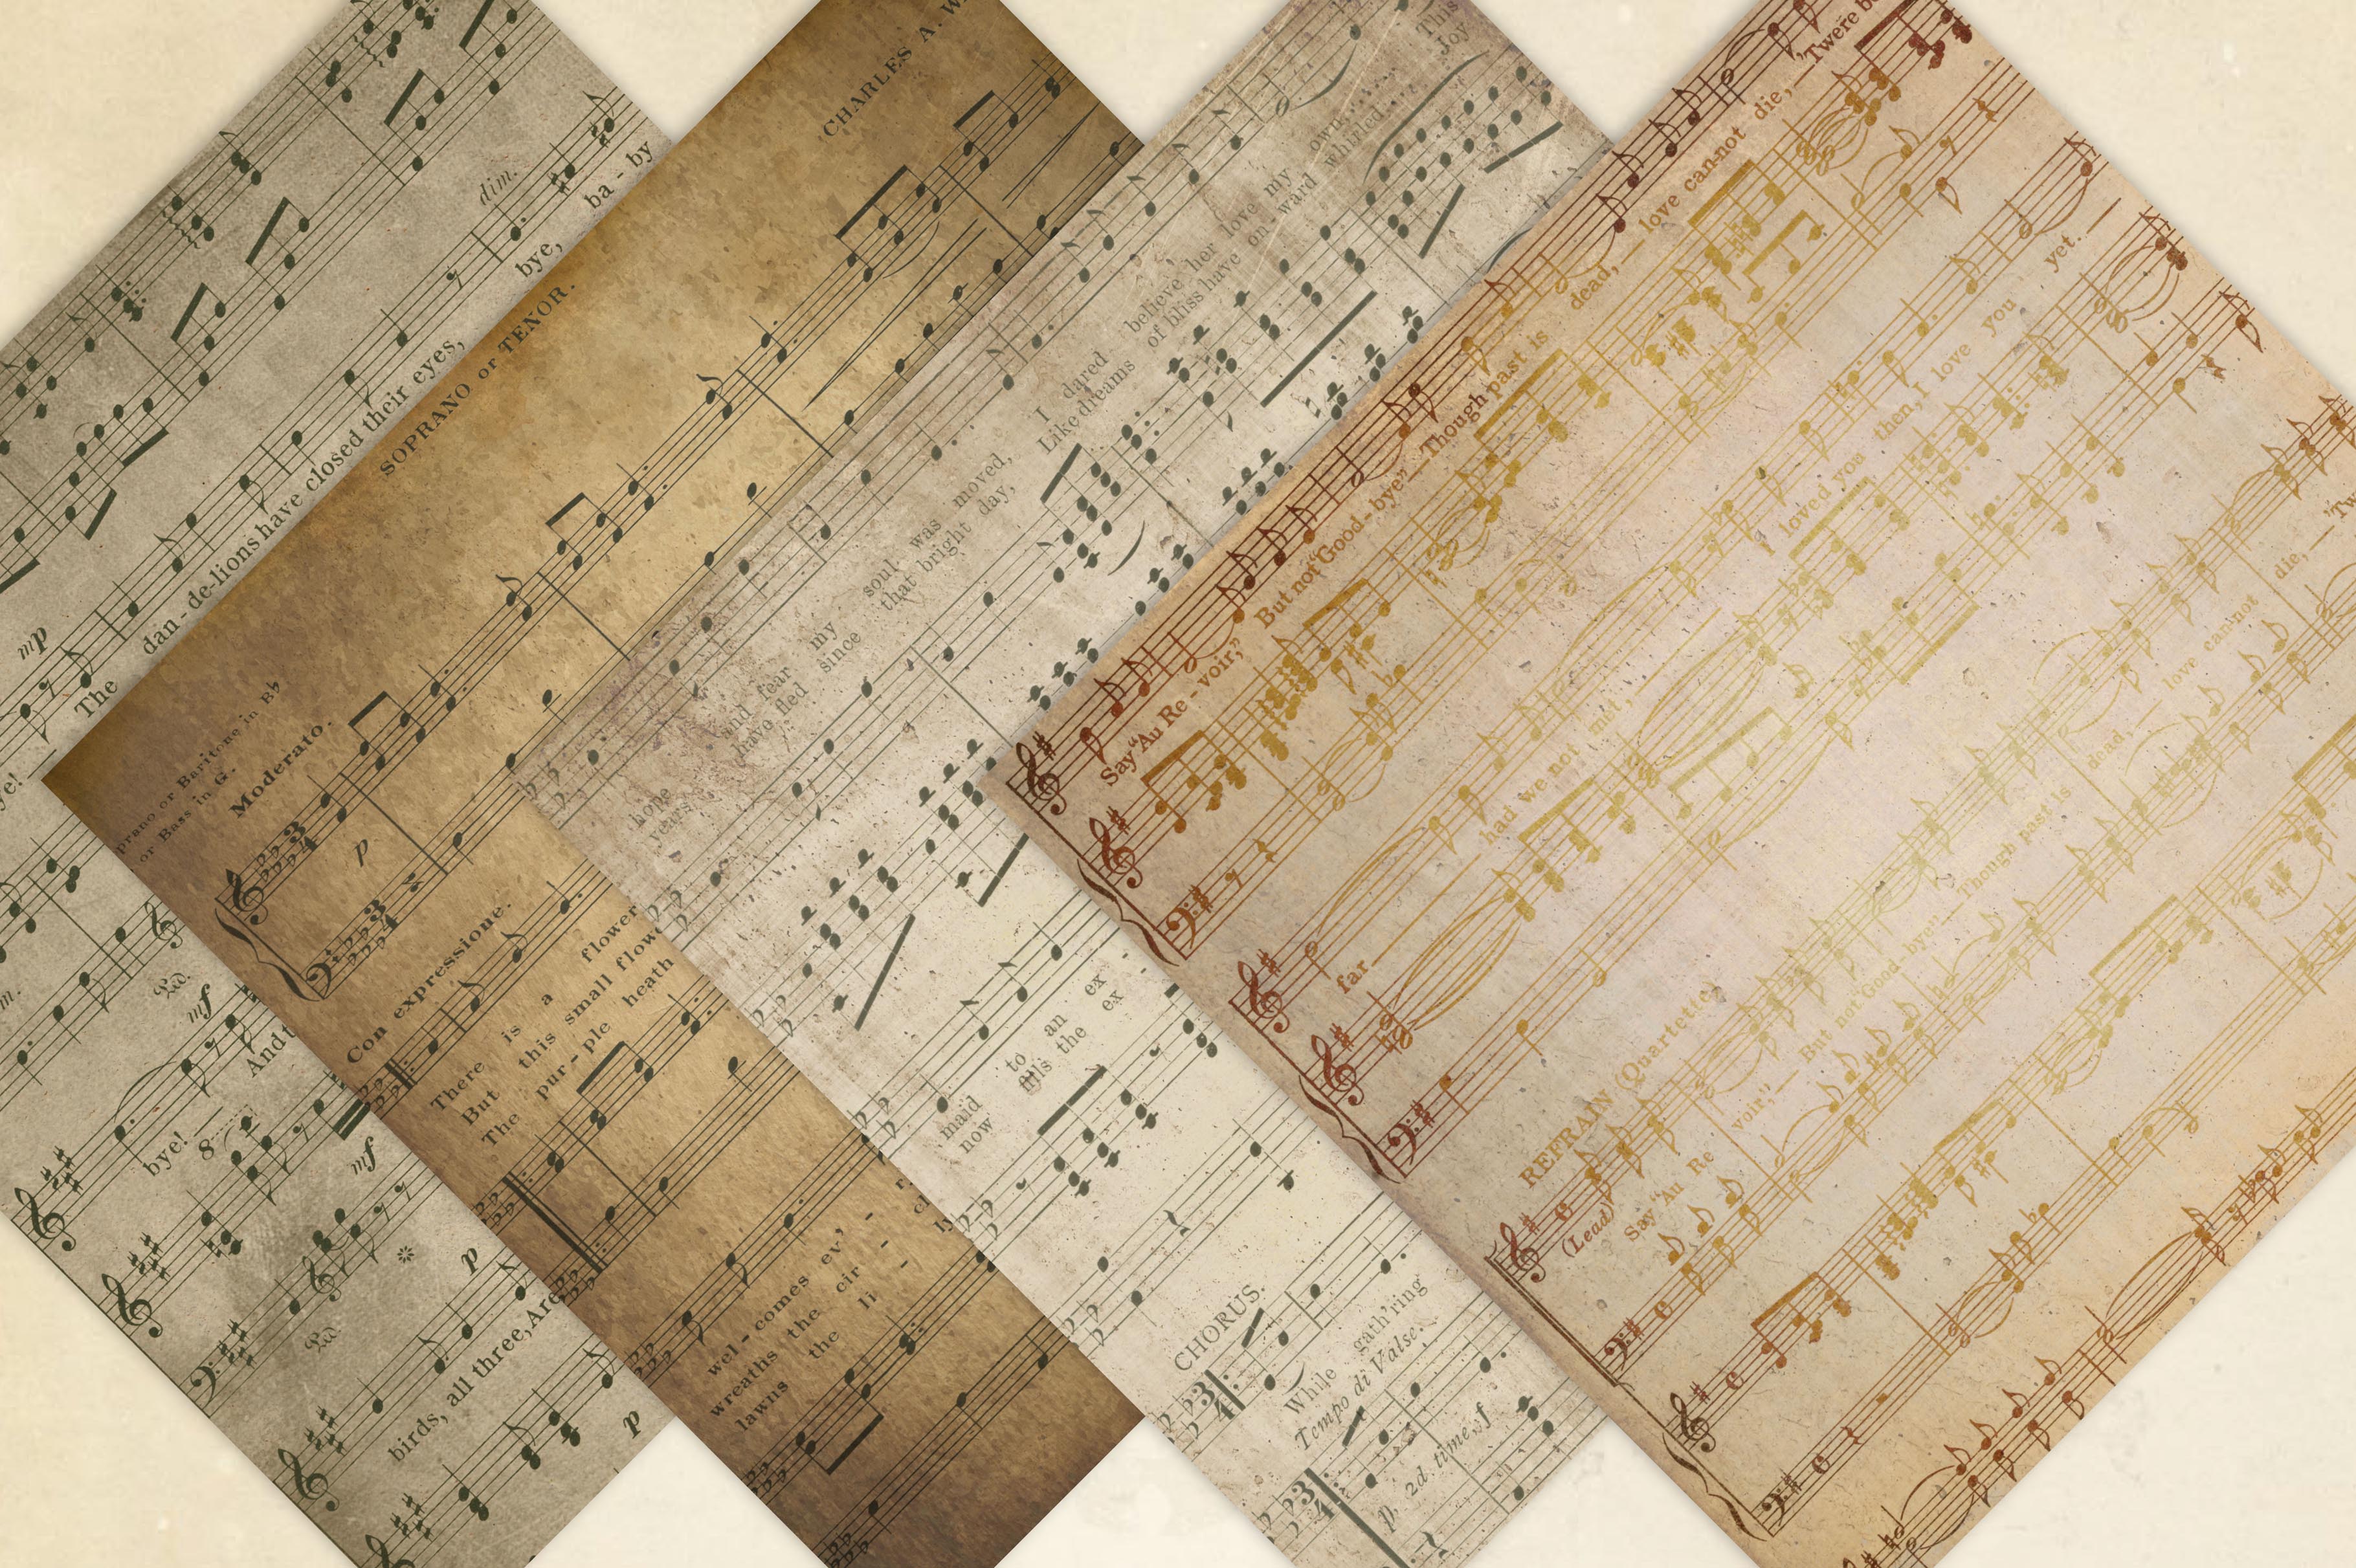 dim.
ba - by
bye,
mp
The dan - de-lions have closed their eyes,
ye!
m.
mf
And t
bye!
8
mf
p
birds, all three, Are
p
CHARLES A. W
SOPRANO or TENOR.
prano or Baritone in B♭
or Bass in G.
Moderato.
p
Con expressione.
There is a flower
But this small flowe
The pur - ple heath
wel - comes ev' -
wreaths the cir -
lawns the li -
This
Joy
hope and fear my soul was moved, I dared believe her love my own
years have fled since that bright day, Like dreams of bliss have on - ward whirled
maid to an ex
now fills the ex
CHORUS.
While gath'ring
Tempo di Valse.
p. 2d. time. f
Say "Au Re - voir," But not "Good - bye" Though past is dead, love can-not die, 'Twere be
far had we not met, I loved you then, I love you yet.
REFRAIN (Quartette)
(Lead)
Say "Au Re voir," But not "Good - bye" Though past is dead, love can-not die, 'Tw